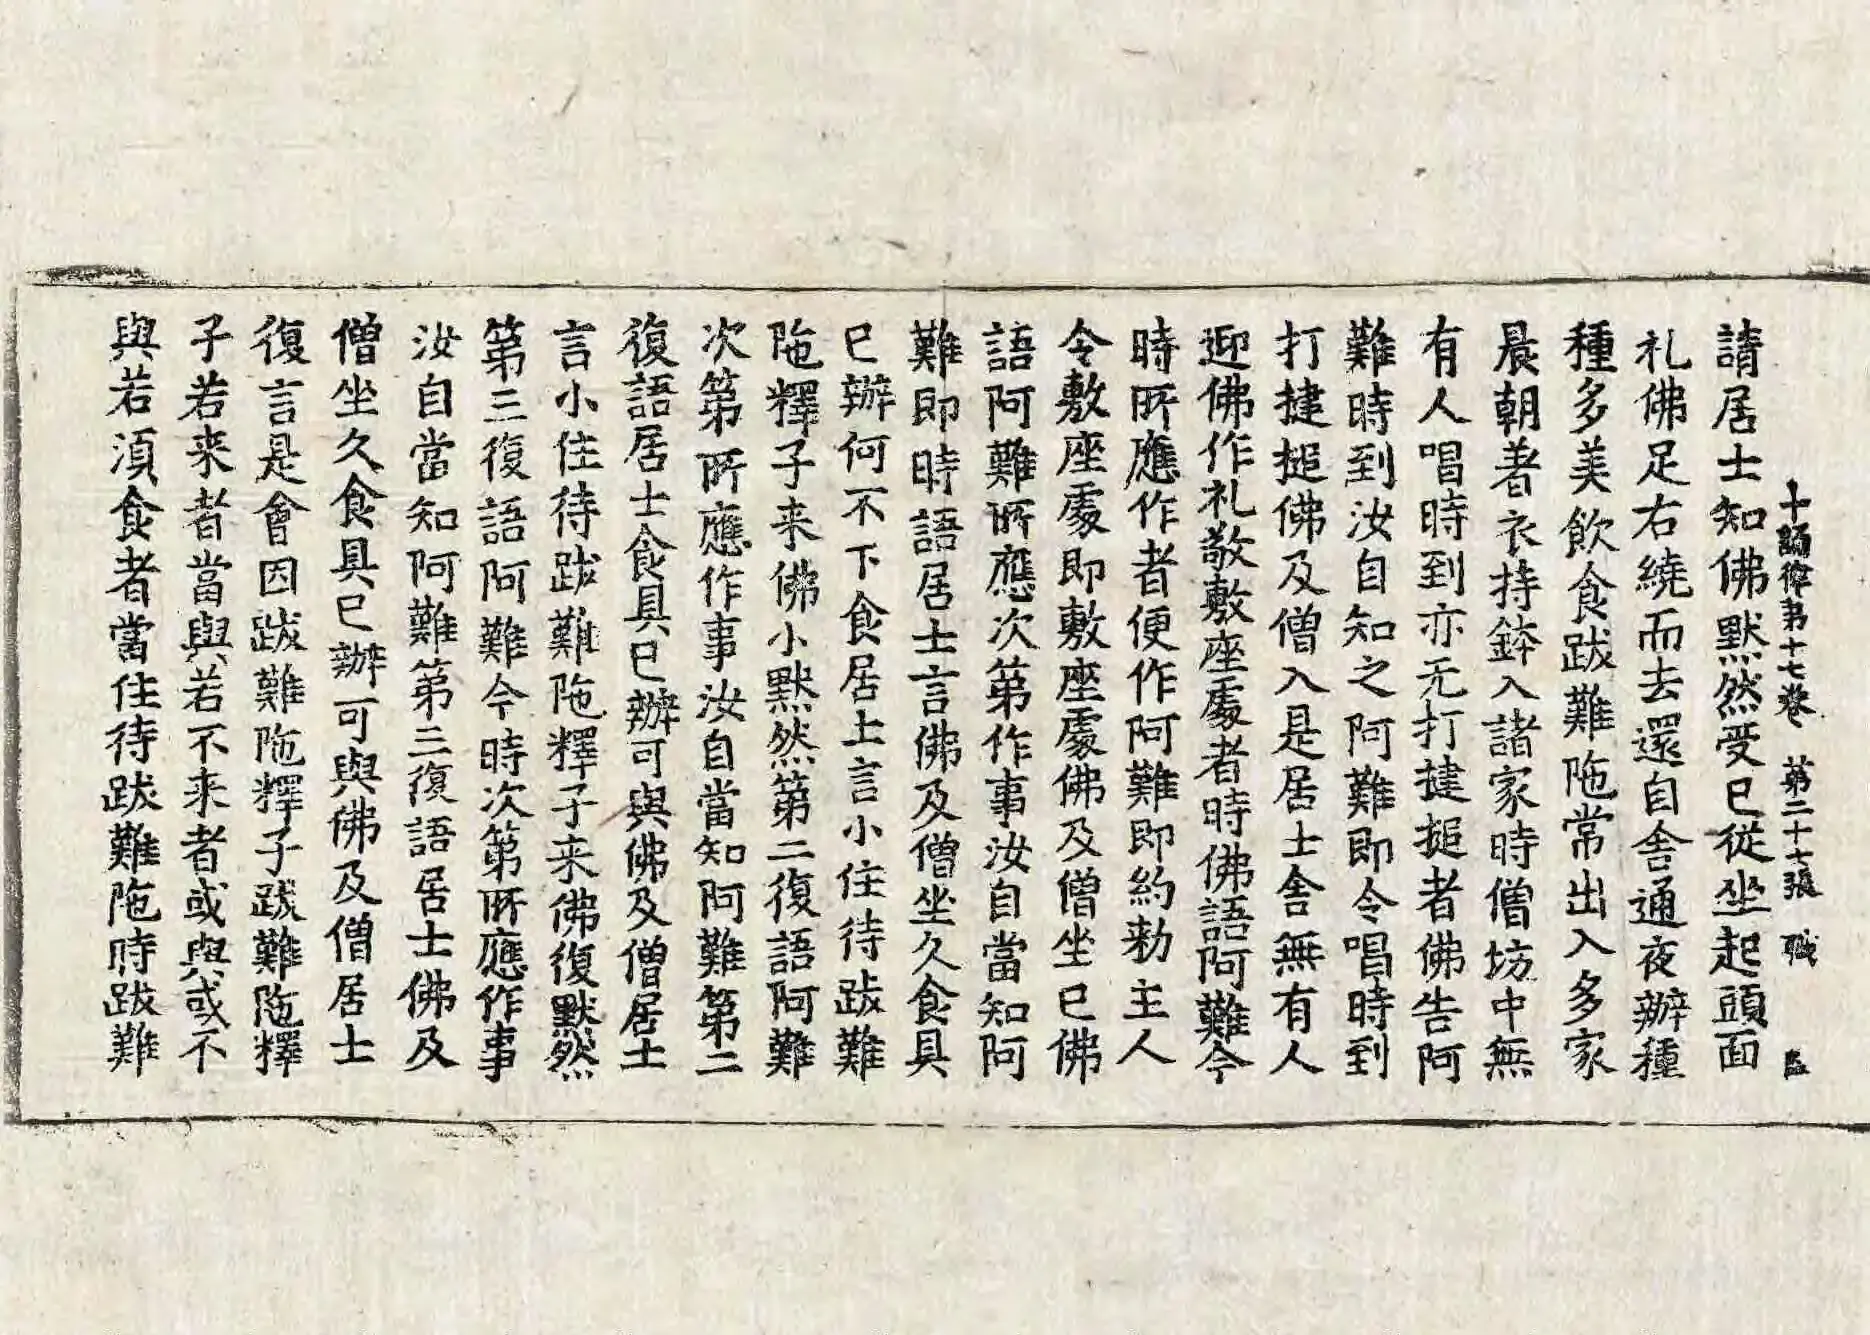 十誦律第十七卷 第二十七張 職
請居士知佛默然受已從坐起頭面
礼佛足右繞而去還自舍通夜辦種
種多美飲食跋難陁常出入多家
晨朝著衣持鉢入諸家時僧坊中無
有人唱時到亦无打揵搥者佛告阿
難時到汝自知之阿難即令唱時到
打揵搥佛及僧入是居士舍無有人
迎佛作礼敬敷座處者時佛語阿難今
時所應作者便作阿難即約勑主人
令敷座處即敷座處佛及僧坐已佛
語阿難所應次第作事汝自當知阿
難即時語居士言佛及僧坐久食具
已辦何不下食居士言小住待跋難
陁釋子来佛小默然第二復語阿難
次第所應作事汝自當知阿難第二
復語居士食具已辦可與佛及僧居士
言小住待跋難陁釋子来佛復默然
第三復語阿難今時次第所應作事
汝自當知阿難第三復語居士佛及
僧坐久食具已辦可與佛及僧居士
復言是會因跋難陁釋子跋難陁釋
子若来者當與若不来者或與或不
與若湏食者當住待跋難陁時跋難